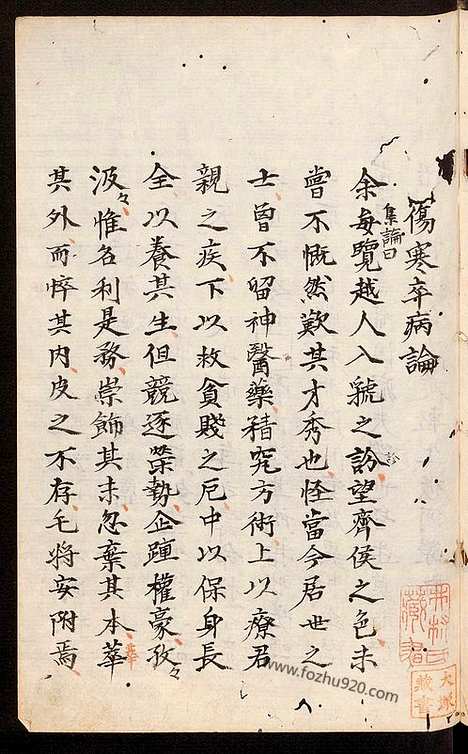 傷寒卒病論
集論曰
余每覽越人入虢之診望齊侯之色未
診
嘗不慨然歎其才秀也怪當今居世之
士曽不留神醫藥精究方術上以療君
親之疾下以救貧賤之厄中以保身長
全以養其生但競逐榮勢企踵權豪孜々
汲々惟名利是務崇飾其末忽棄其本華
華
其外而悴其内皮之不存毛將安附焉
大塚
藏書
www.fozhu920.com